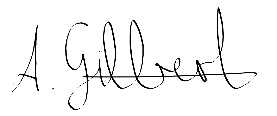 A. Gilbert